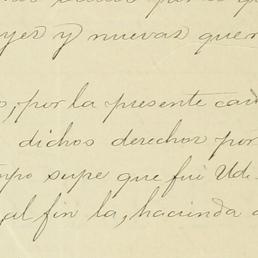 yes y nuevas quer
o, por la presente car
dichos derechos por
mpo supe que fué Ud.
al fin la, hacienda